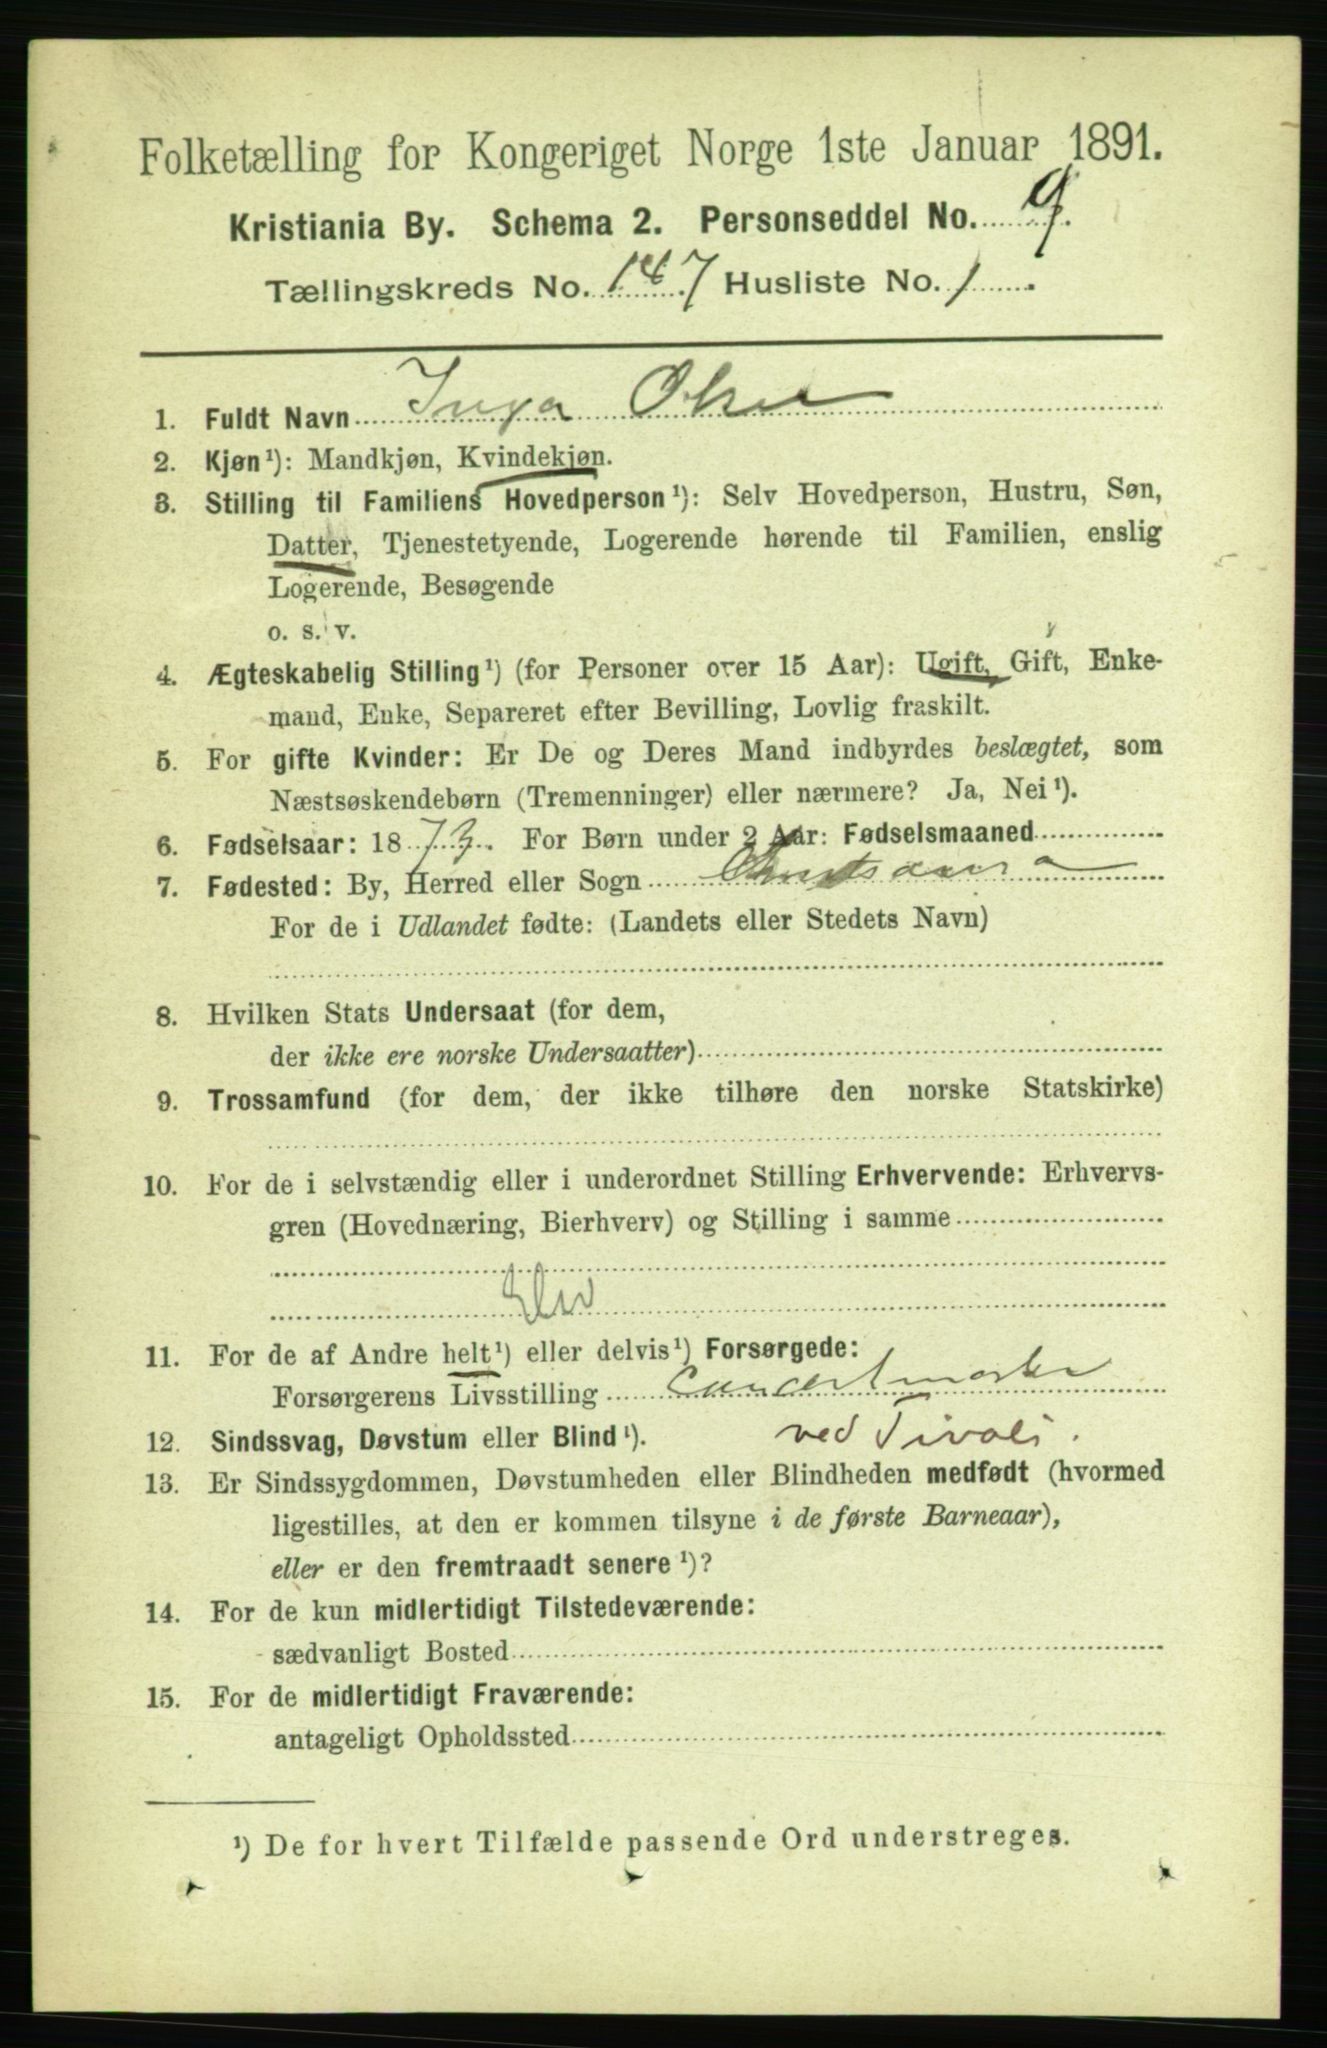 Folketælling for Kongeriget Norge 1ste Januar 1891.
Kristiania By. Schema 2. Personseddel No. 9.
Tællingskreds No. 147 Husliste No. 1
1. Fuldt Navn Inga Olsen
2. Kjøn¹): Mandkjøn, Kvindekjøn.
3. Stilling til Familiens Hovedperson¹): Selv Hovedperson, Hustru, Søn,
Datter, Tjenestetyende, Logerende hørende til Familien, enslig
Logerende, Besøgende
o. s. v.
4. Ægteskabelig Stilling¹) (for Personer over 15 Aar): Ugift, Gift, Enke-
mand, Enke, Separeret efter Bevilling, Lovlig fraskilt.
5. For gifte Kvinder: Er De og Deres Mand indbyrdes beslægtet, som
Næstsøskendebørn (Tremenninger) eller nærmere? Ja, Nei¹).
6. Fødselsaar: 1873. For Børn under 2 Aar: Fødselsmaaned
7. Fødested: By, Herred eller Sogn
For de i Udlandet fødte: (Landets eller Stedets Navn)
8. Hvilken Stats Undersaat (for dem,
der ikke ere norske Undersaatter)
9. Trossamfund (for dem, der ikke tilhøre den norske Statskirke)
10. For de i selvstændig eller i underordnet Stilling Erhvervende: Erhvervs-
gren (Hovednæring, Bierhverv) og Stilling i samme
11. For de af Andre helt¹) eller delvis¹) Forsørgede:
Forsørgerens Livsstilling
12. Sindssvag, Døvstum eller Blind¹). ved Tivoli.
13. Er Sindssygdommen, Døvstumheden eller Blindheden medfødt (hvormed
ligestilles, at den er kommen tilsyne i de første Barneaar),
eller er den fremtraadt senere¹)?
14. For de kun midlertidigt Tilstedeværende:
sædvanligt Bosted
15. For de midlertidigt Fraværende:
antageligt Opholdssted
¹) De for hvert Tilfælde passende Ord understreges.